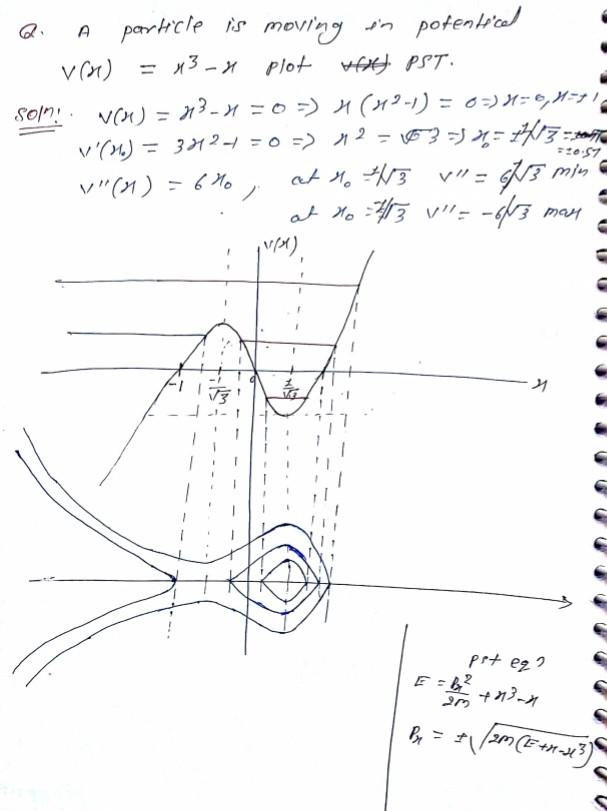 Q. A particle is moving in potential
V(x) = x³-x plot V(x) PST.
Soln: V(x) = x³-x = 0 => x(x²-1) = 0 => x=0, x=±1
V'(x₀) = 3x²-1 = 0 => x² = 3 => x₀ = ±1/√3
= ±0.57
V''(x) = 6x₀, at x₀ = 1/√3 V'' = 6/√3 min
at x₀ = -1/√3 V'' = -6/√3 max
V(x)
-1 -1/√3 0 1/√3 x
pst eqn
E = Pₓ²/2m + x³-x
Pₓ = ±√2m(E+x-x³)